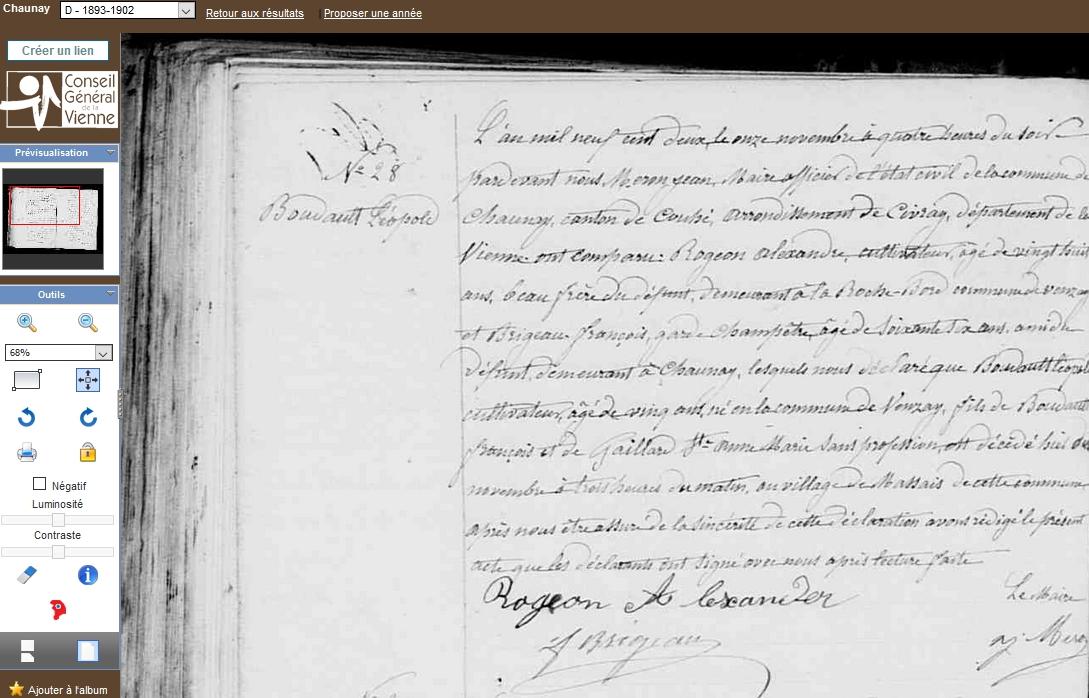 Chaunay
D - 1893-1902
Retour aux résultats | Proposer une année
Créer un lien
Conseil
Général
de la
Vienne
Prévisualisation
Outils
68%
Négatif
Luminosité
Contraste
Ajouter à l'album
N° 28
Boudault Léopold
L'an mil neuf cent deux, le onze novembre à quatre heures du soir
pardevant nous, Meron jean, Maire officier de l'état civil de la commune de
Chaunay, canton de Couhé, arrondissement de Civray, département de la
Vienne ont comparu: Rogeon alexandre, cultivateur, âgé de vingt huit
ans, beau frère du défunt, demeurant à la Roche Bord commune de
et Brigeau françois, garde champêtre, âgé de soixante six ans, ami du
défunt, demeurant à Chaunay, lesquels nous déclaré que Boudault Léopold
cultivateur, âgé de vingt ans, né en la commune de, fils de Boudault
françois et de Gaillard Ste anne Marie sans profession, est décédé hui onze
novembre à trois heures du matin, au village de Massais de cette commune
après nous être assuré de la sincérité de cette déclaration avons rédigé le présent
acte que les déclarants ont signé avec nous après lecture faite
Rogeon Alexander
Le Maire
f Brigeau